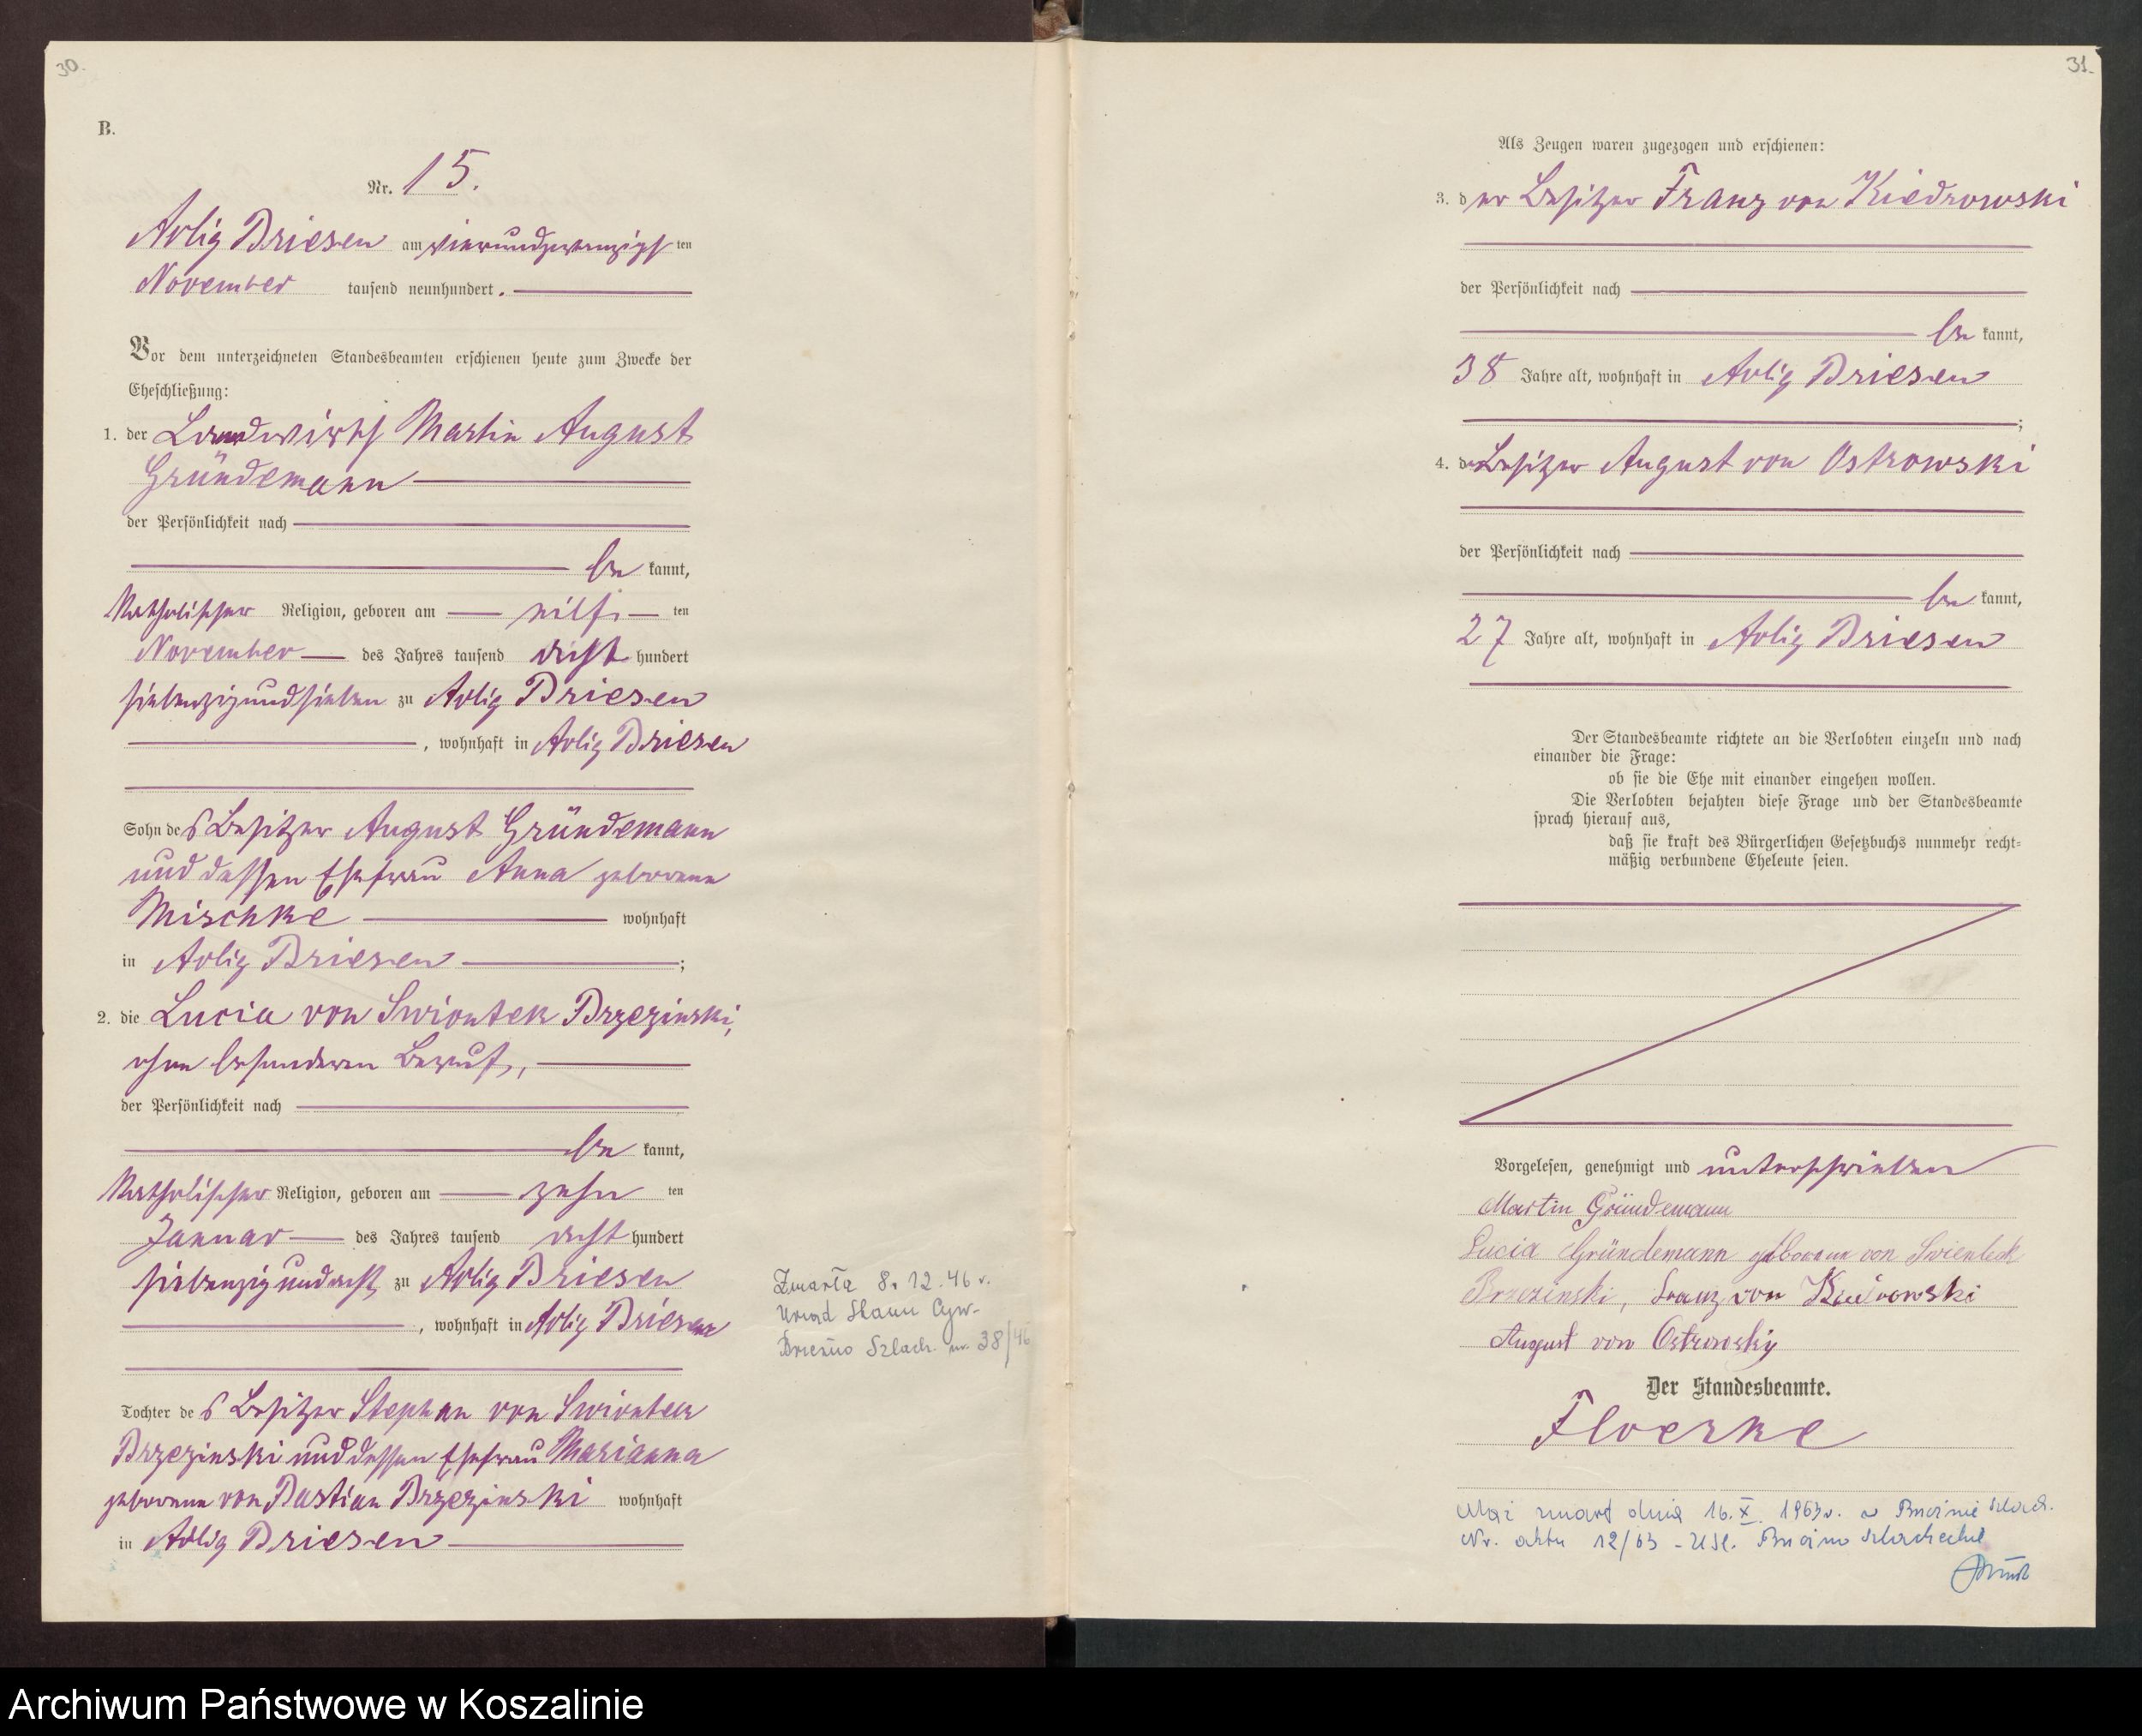 30.
B.
Nr. 15.
Adlig Briesen am vierundzwanzigsten
November tausend neunhundert.
Vor dem unterzeichneten Standesbeamten erschienen heute zum Zwecke der
Eheschließung:
1. der Landwirth Martin August
Gründemann
der Persönlichkeit nach
be kannt,
katholischer Religion, geboren am elf ten
November des Jahres tausend acht hundert
siebenzigundsieben zu Adlig Briesen
, wohnhaft in Adlig Briesen
Sohn des Besitzer August Gründemann
und dessen Ehefrau Anna geborene
Mischke wohnhaft
in Adlig Briesen ;
2. die Lucia von Swiontek Brzezinski,
ohne besonderen Beruf,
der Persönlichkeit nach
be kannt,
katholischer Religion, geboren am zehn ten
Januar des Jahres tausend acht hundert
siebenzigundacht zu Adlig Briesen
, wohnhaft in Adlig Briesen
Tochter des Besitzer Stephan von Swiontek
Brzezinski und dessen Ehefrau Marianna
geborene von Bastian Brzezinski wohnhaft
in Adlig Briesen
Zmarła 8.12.46 r.
Urząd Stanu Cyw.
Brzeźno Szlach. nr. 38/46
31.
Als Zeugen waren zugezogen und erschienen:
3. der Besitzer Franz von Kiedrowski
der Persönlichkeit nach
be kannt,
38 Jahre alt, wohnhaft in Adlig Briesen
;
4. der Besitzer August von Ostrowski
der Persönlichkeit nach
be kannt,
27 Jahre alt, wohnhaft in Adlig Briesen
Der Standesbeamte richtete an die Verlobten einzeln und nach
einander die Frage:
ob sie die Ehe mit einander eingehen wollen.
Die Verlobten bejahten diese Frage und der Standesbeamte
sprach hierauf aus,
daß sie kraft des Bürgerlichen Gesetzbuchs nunmehr recht-
mäßig verbundene Eheleute seien.
Vorgelesen, genehmigt und unterschrieben
Martin Gründemann
Lucia Gründemann geborene von Swientek
Brzezinski, Franz von Kiedrowski
August von Ostrowsky
Der Standesbeamte.
Floerke
Mąż zmarł dnia 16.X. 1963 r. w Brzeźnie Szlach.
Nr. aktu 12/63 - USC. Brzeźno Szlacheckie
Archiwum Państwowe w Koszalinie